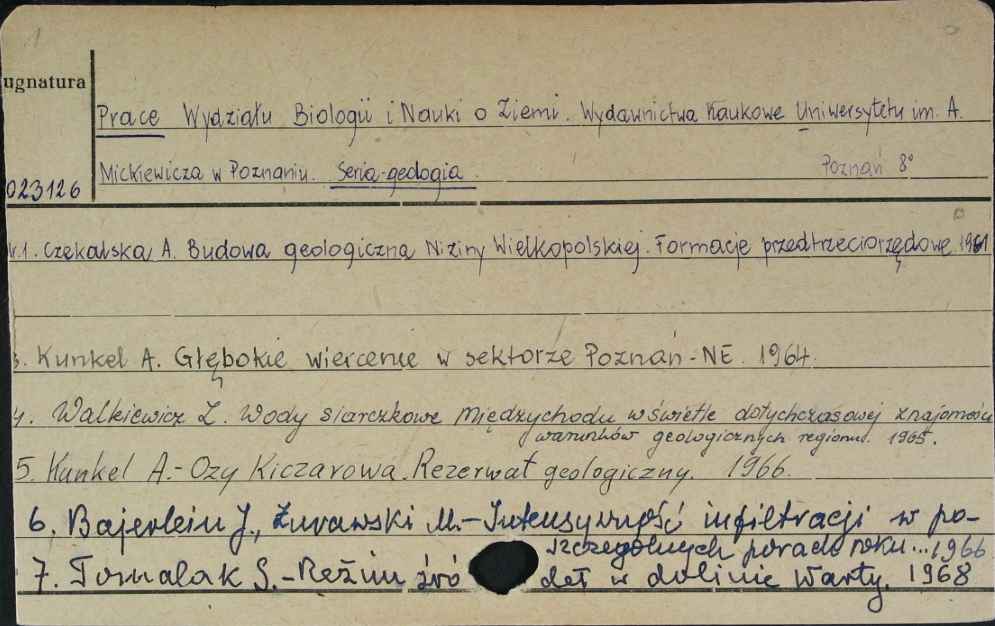 ugnatura
Prace Wydziału Biologii i Nauki o Ziemi. Wydawnictwa Naukowe Uniwersytetu im. A.
Mickiewicza w Poznaniu. Seria-geologia Poznań 8°
023126
1. Czekalska A. Budowa geologiczna Niziny Wielkopolskiej. Formacje przedtrzeciorzędowe. 1961
3. Kunkel A. Głębokie wiercenie w sektorze Poznań-NE. 1964.
4. Walkiewicz Z. Wody siarczkowe Międzychodu w świetle dotychczasowej znajomości
warunków geologicznych regionu. 1965.
5. Kunkel A.- Ozy Kiczarowa. Rezerwat geologiczny. 1966.
6. Bajerlein J., Żurawski M.- Intensywność infiltracji w po-
szczególnych porach roku... 1966.
7. Tomalak S.- Reżim źródeł w dolinie Warty. 1968